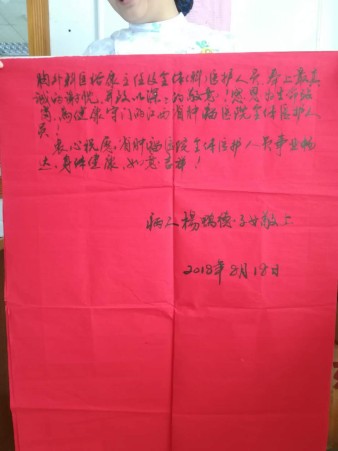 胸外科医
主任及全体科医护人员,奉上最真
诚的谢忱,并致以深深的敬意!感恩
为健康守门的江西省肿瘤医院全体医护人
员!
衷心祝愿,省肿瘤医院全体医护人员事业畅
达,身体健康,如意吉祥!
病人楊瑞德·子女敬上
2018年8月18日